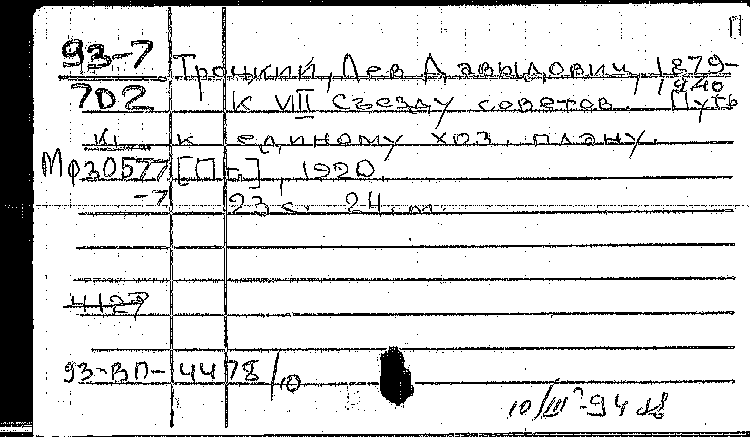 П
93-7 Троцкий, Лев Давыдович, 1879-1940
702 К VIII съезду советов. Путь
к единому хоз. плану.
Мф30577 [Пг.], 1920.
-7 23 с. 24 cm.
4127
93-ВП-4478/10
10/III-94